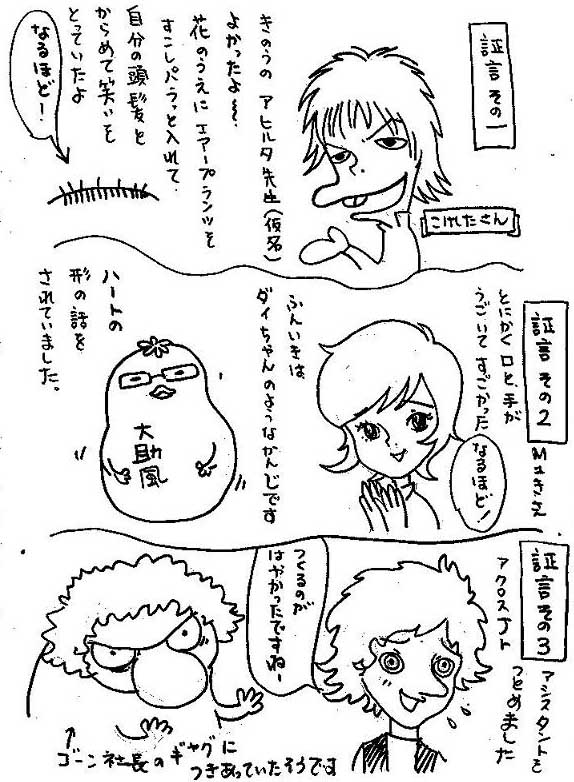 証言その一
こけしたさん
きのうの アヒルタ先生(仮名)
よかったよ〜。
花のうえに エアープランツを
すこしパラっと入れて
自分の頭髪と
からめて笑いを
とっていたよ
なるほどー!
証言その2
Mユきさん
とにかく口と、手が
うごいてすごかった
なるほど!
ふんいきは、
ダイちゃんのようなかんじです
大助風
ハートの
形の話を
されていました。
証言その3
アクロスJト
アシスタントを
つとめました
つくるのが
はやかったですねー
↑
ゴーン社長のギャグに
つきあっていたそうです